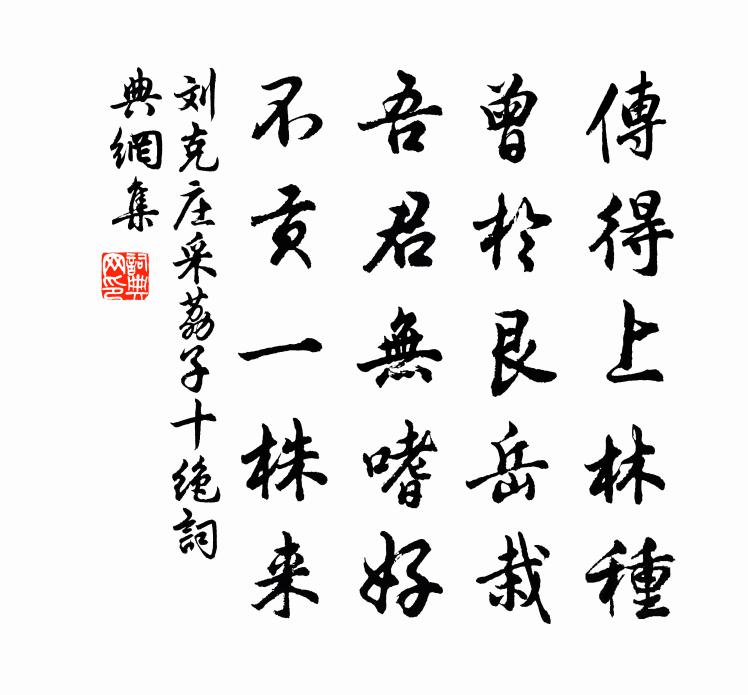 傳得上林種
曾於艮岳栽
吾君無嗜好
不貢一株来
刘克庄采荔子十绝詞
典網集
詞典
网印